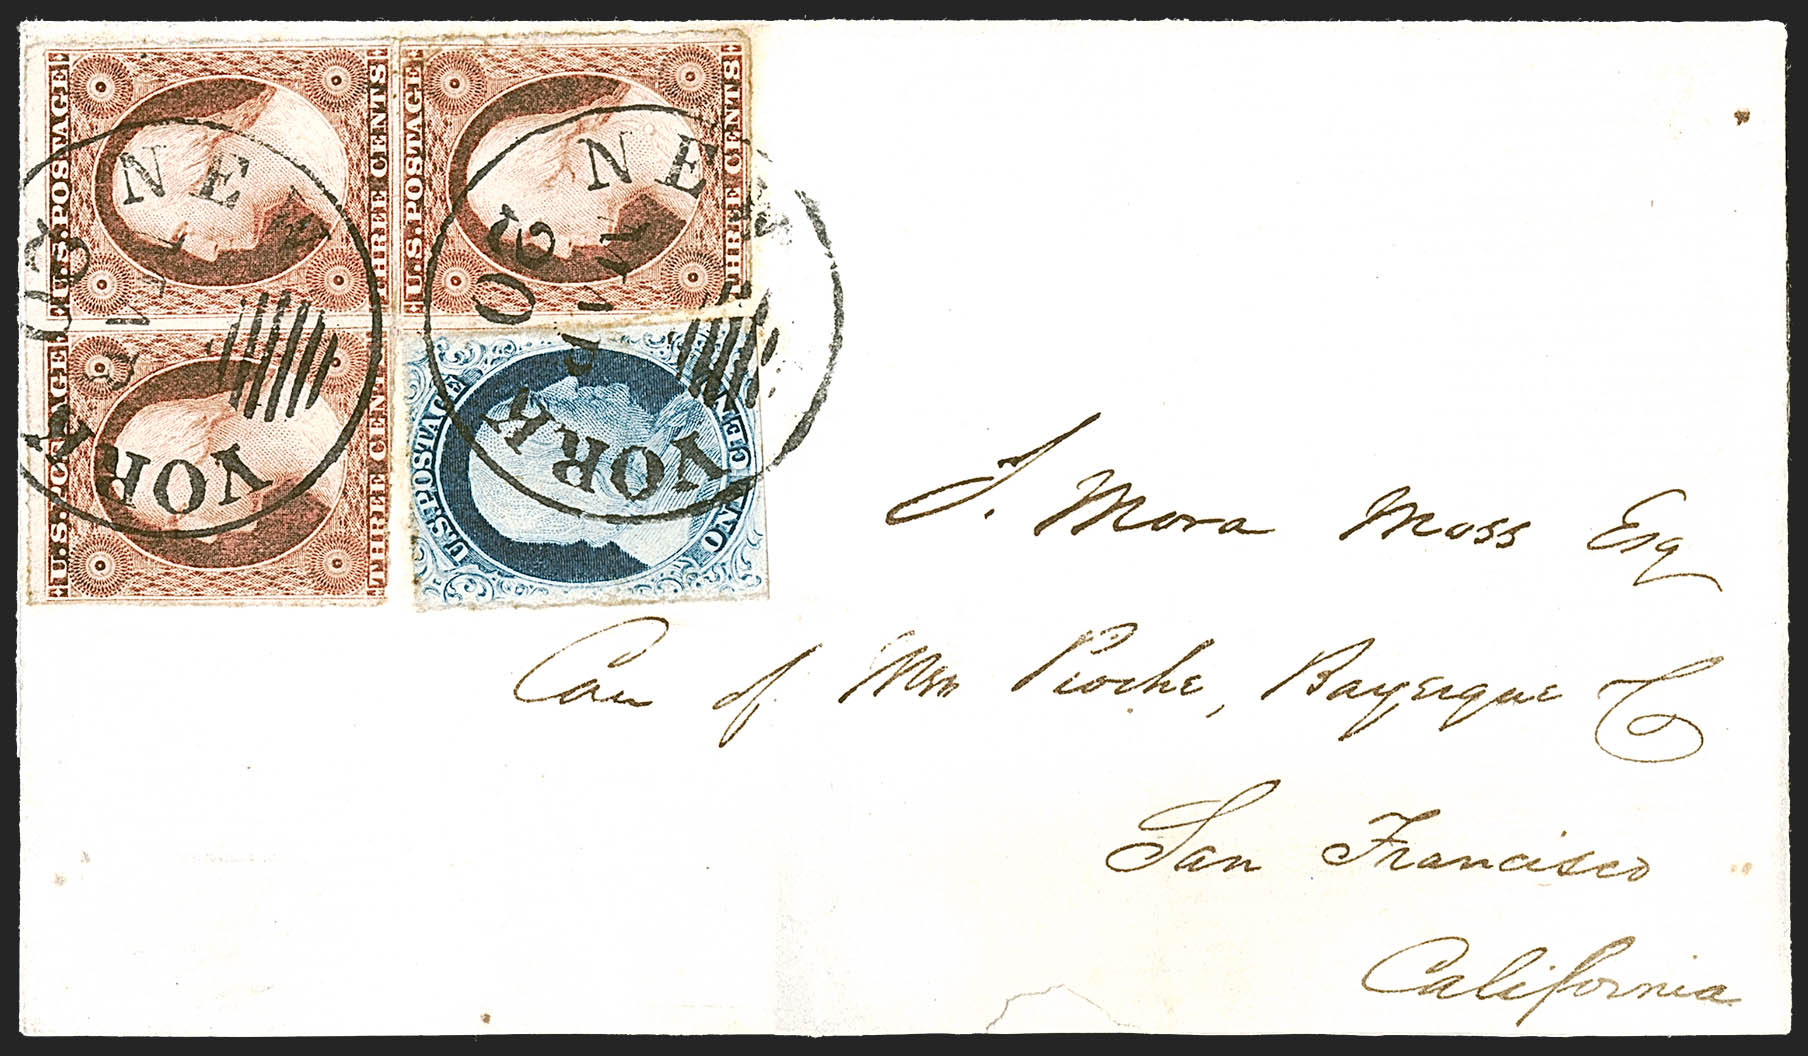 U.S. POSTAGE
THREE CENTS
U.S. POSTAGE
THREE CENTS
U.S. POSTAGE
THREE CENTS
U.S. POSTAGE
ONE CENT
NEW YORK
NEW YORK
J. Mora Moss Esq
Care of Mssrs Pioche, Bayerque & Co
San Francisco
California